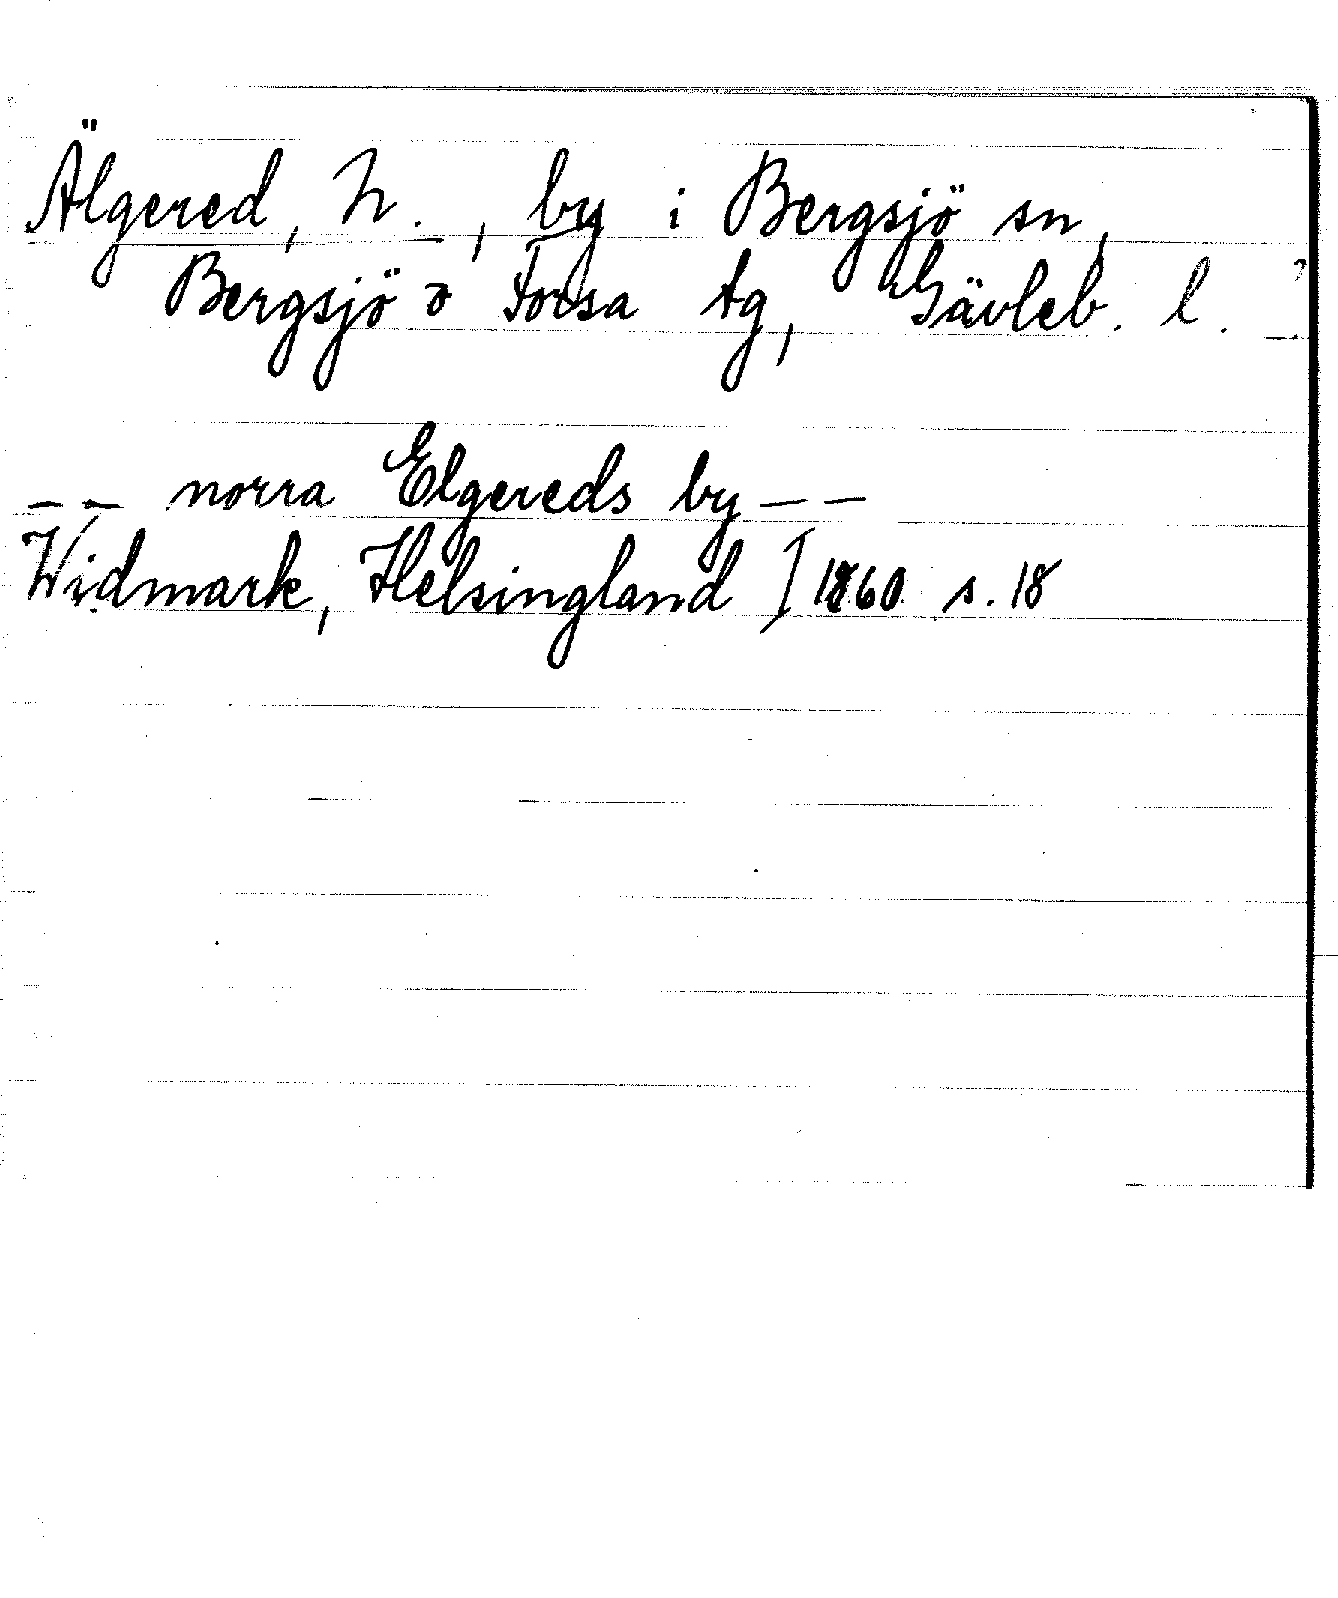 Älgered, N., by i Bergsjö sn,
Bergsjö o Forsa tg, Gävleb. l.
-- norra Elgereds by --
Widmark, Helsingland I 1860 s. 18